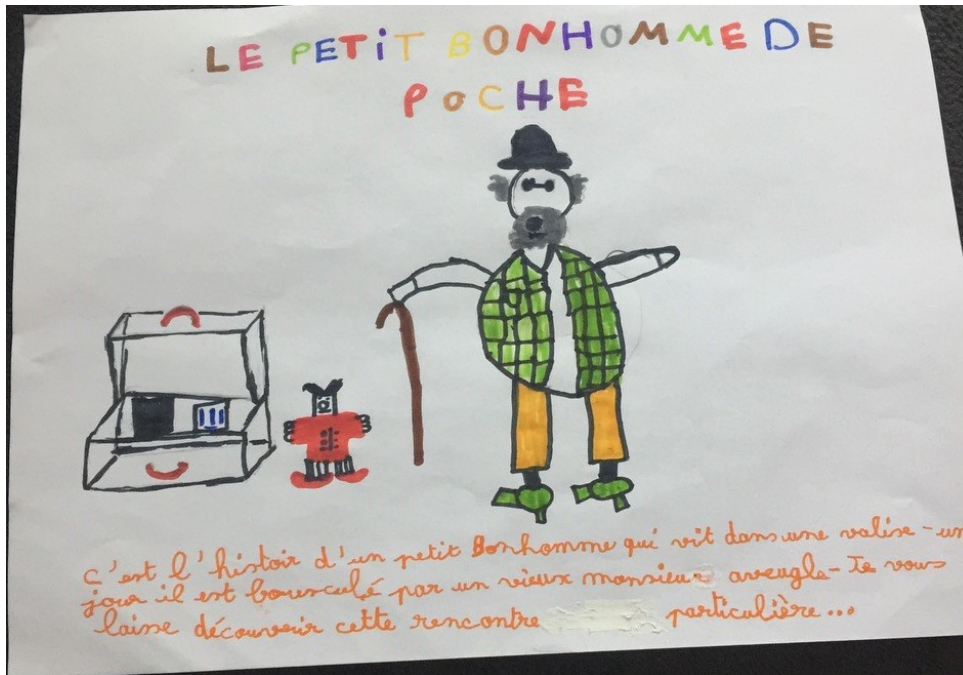 LE PETiT BONHOMME DE
POCHE
C'est l'histoir d'un petit Bonhomme qui vit dans une valise - un
jour il est bousculé par un vieux monsieur aveugle - Je vous
laisse découvrir cette rencontre particulière...